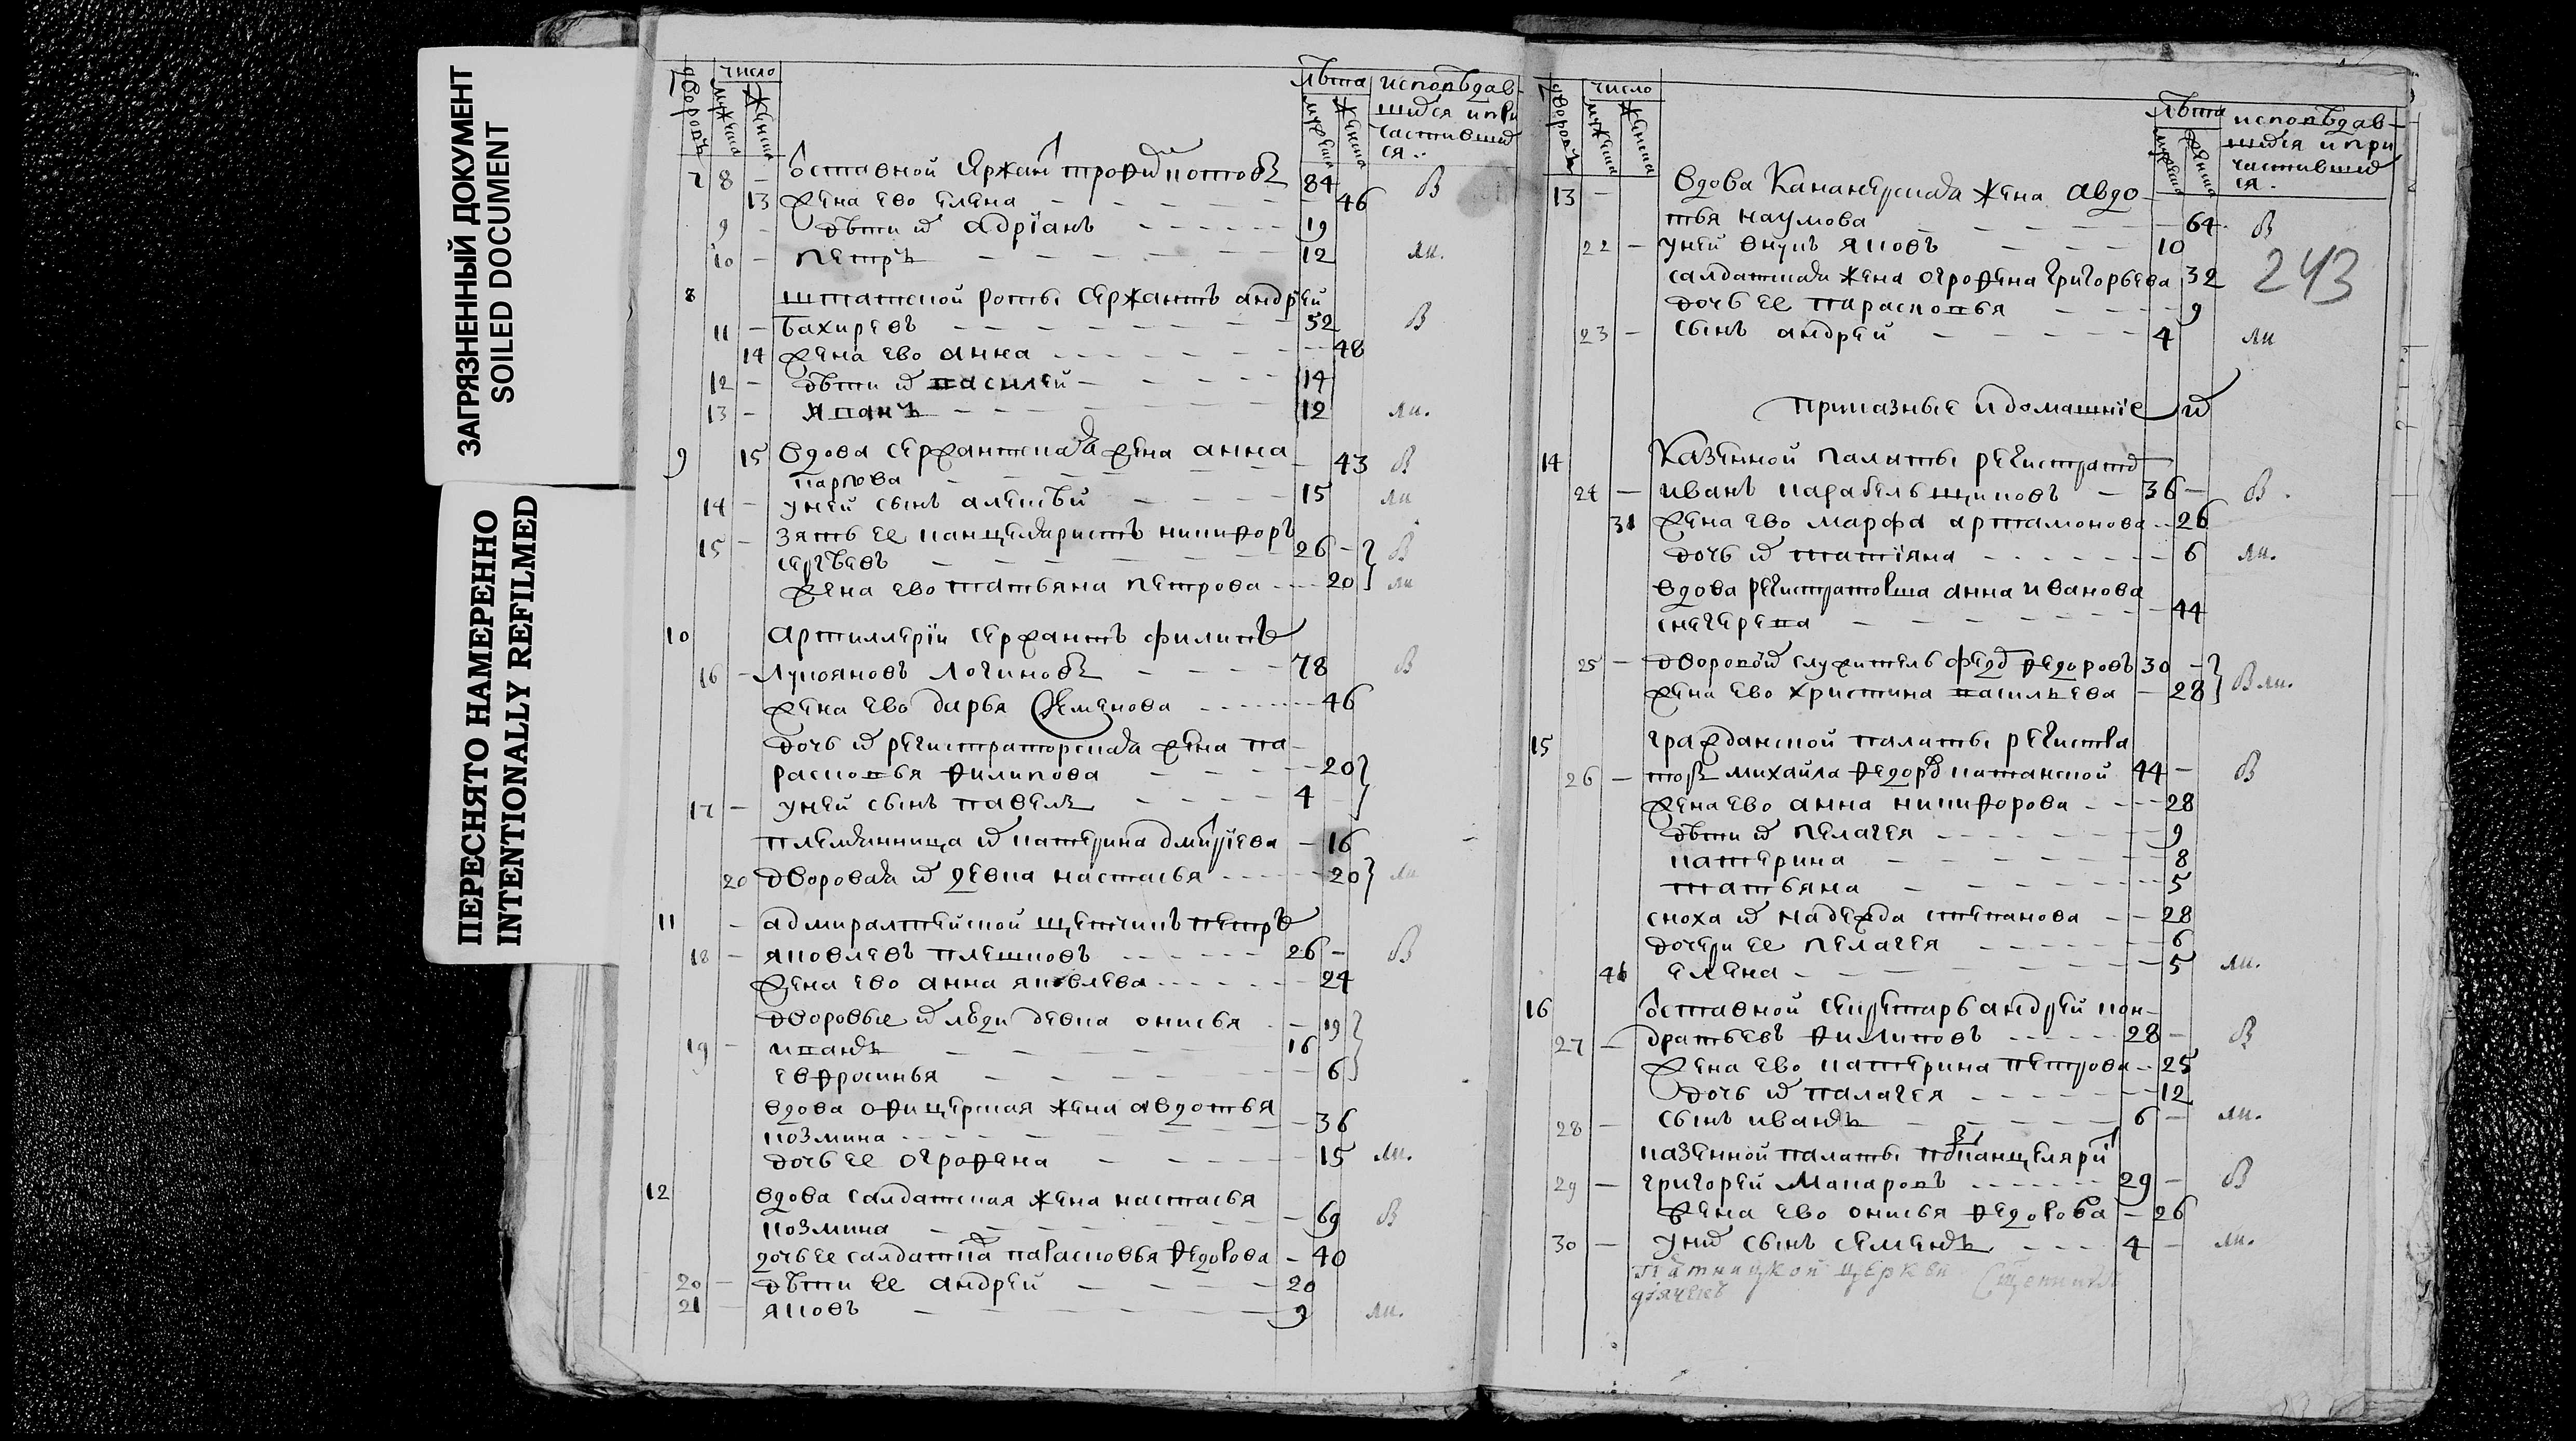 ЗАГРЯЗНЕННЫЙ ДОКУМЕНТ
SOILED DOCUMENT
ПЕРЕСНЯТО НАМЕРЕННО
INTENTIONALLY REFILMED
дворовъ число мужеска женска лѣта мужеска женска исповѣдав-
шихся и при
частивших
ся
7 8 — оставной сержант трофим 84 В
13 жена ево елена 46
9 — дѣти их адріанъ 19
10 — петръ 12 ли.
8 штатской роты сержантъ андрѣй
11 — бахиревъ 52 В
14 жена ево анна 48
12 — дѣти их василей 14
13 — яванъ 12 ли.
9 15 вдова сержантская жена анна 43 В
карпова
14 — у ней сынъ алексѣй 15 ли
15 — зять ее канцеляристъ никифоръ
сергѣевъ 26 — В
жена ево татьяна петрова 20 ли
10 артиллеріи сержантъ филипъ
16 — лукояновъ логиновъ 78 В
жена ево дарья семенова 46
дочь их регистраторская жена па-
расковья филипова 20
17 — у ней сынъ павелъ 4
племянница их катерина дмитріева — 16
20 дворовая их девка настасья 20 ли
11 — адмиралтейской щепчикъ петръ
18 — яковлевъ плешковъ 26 — В
жена ево анна яковлева 24
дворовые их люди девка онисья — 19
19 — иванъ 16
евфросинья 6
вдова офицерская жена авдотья
козмина — 36
дочь ее огрофена 15 ли.
12 вдова салдатская жена настасья
козмина — 69 В
дочь ее салдатка парасковья федорова — 40
20 — дѣти ее андрей 20
21 — яковъ 9 ли.
дворовъ число мужеска женска лѣта мужеска женска исповѣдав-
шихся и при
частивших
ся.
243
13 — вдова канонерская жена авдо-
тья наумова — 64 В
22 — у ней внукъ яковъ 10
салдатская жена огрофена григорьева 32
дочь ее парасковья 9
23 — сынъ андрей 4 ли
приказные и домашніе их
14 казенной палаты регистрато
24 — иванъ карабельщиковъ — 36 — В.
31 жена ево марфа артамонова 26
дочь их татіяна 6 ли.
вдова регистраторша анна иванова
снегерева — 44
25 — дворовой их служитель федоръ федоровъ 30 —
жена ево христина васильева — 28 В ли.
15 гражданской палаты регистра
26 — торъ михайла федоров катанской 44 — В
жена ево анна никифорова 28
дѣти их пелагея 9
катерина 8
татьяна 5
сноха их надежда степанова — 28
дочери ее пелагея 6
41 елена 5 ли.
16 оставной секретарь андрей кон-
27 — дратьевъ филиповъ 28 — В
жена ево катерина петрова 25
дочь их палагея 12
28 — сынъ иванъ 6 — ли.
казенной палаты подканцеляри
29 — григорей макаровъ 29 — В
жена ево онисья федорова — 26
30 — у них сынъ семенъ 4 — ли.
пятницкой церкви